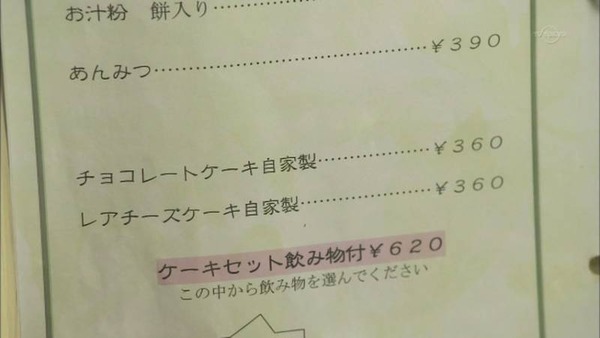 お汁粉　餅入り……………
あんみつ…………………………………￥３９０
チョコレートケーキ自家製……………￥３６０
レアチーズケーキ自家製………………￥３６０
ケーキセット飲み物付￥６２０
この中から飲み物を選んでください